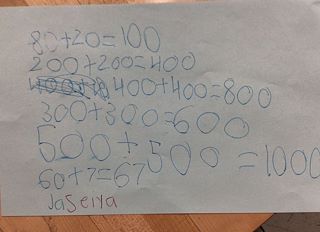 80+20=100
200+200=400
400+400=800
300+300=600
500+500=1000
60+7=67
Jaseiya